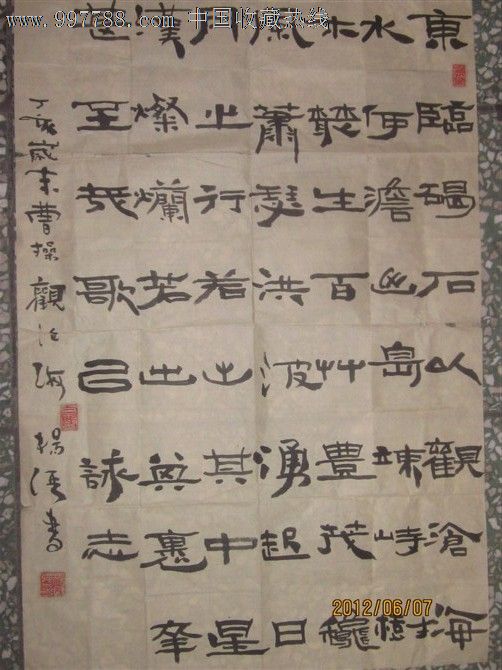 www.997788.com 中国收藏热线
東臨碣石以觀滄海
水何澹山島竦峙樹
木叢生百艸豐茂龝
風蕭瑟洪波湧起日
月之行若出其中星
漢燦爛若出其裏幸
甚至哉歌以詠志
丁亥歲末曹操觀滄海 楊書
2012/06/07